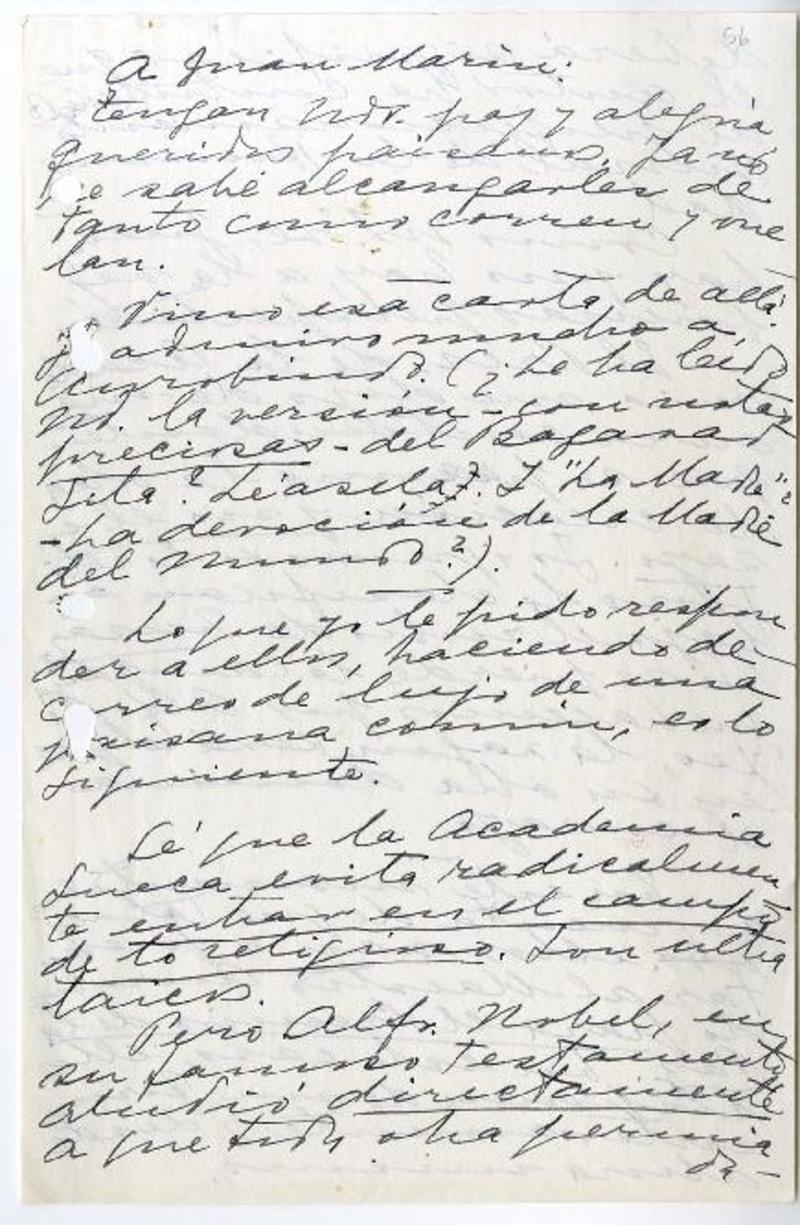 56
A Juan Marín:
Tengan Uds. paz y alegría
queridos paisanos. Ya no
se sabe alcanzarles de
tanto como corren y vue
lan.
Vino esa carta de allá.
Yo admiro mucho a
Aurobindo. (¿Le ha leído
Ud. la versión - con notas
preciosas - del Bagavad
Jita? Léasela. Y "La Madre"
- La devoción de la Madre
del Mundo?).
Lo que yo le pido respon
der a ellos, haciendo de
correo de lujo de una
paisana común, es lo
siguiente.
Sé que la Academia
Sueca evita radicalmen
te entrar en el campo
de lo religioso. Son ultra
laicos.
Pero Alfr. Nobel, en
su famoso testamento
aludió directamente
a que toda obra premia
da-